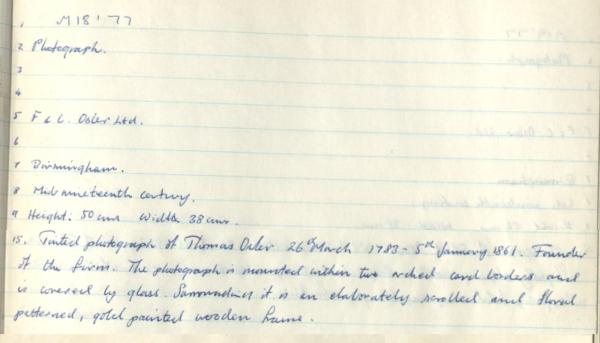 1 M18'77
2 Photograph.
3
4
5 F & C. Osler Ltd.
6
7 Birmingham.
8 Mid nineteenth century.
9 Height: 50 cms Width 38 cms.
15. Tinted photograph of Thomas Osler 26th March 1783 - 5th January 1861. Founder
of the firm. The photograph is mounted within two arched card borders and
is covered by glass. Surrounding it is an elaborately scrolled and floral
patterned, gold painted wooden frame.